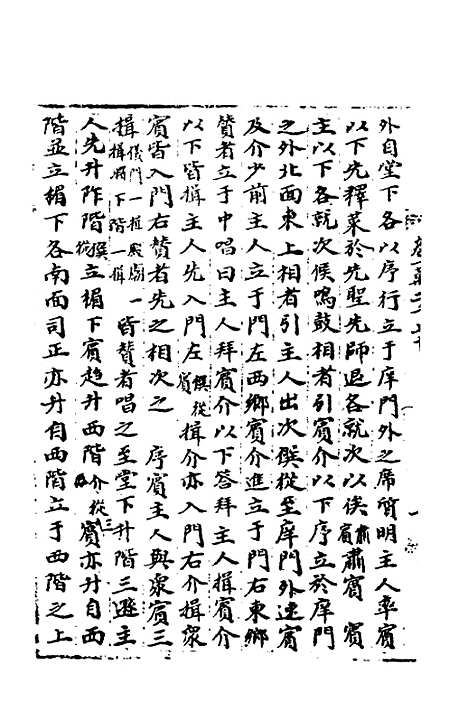 外自堂下各以序行立于庠門外之席質明主人率賓
以下先釋菜於先聖先師退各就次以俟肅賓肅賓　賓
主以下各就次候鳴鼓相者引賓介以下序立於庠門
之外北面東上相者引主人出次僎從至庠門外迎賓
及介少前主人立于門左西鄉賓介進立于門右東鄉
贊者立于中唱曰主人拜賓介以下答拜主人揖賓介
以下皆揖主人先入門左僎從賓揖介亦入門右介揖眾
賓皆入門右贊者先之相次之　序賓主人與眾賓三
揖儀門一揖殿廟一揖楣下階一揖皆贊者唱之至堂下升階三遜主
人先升阼階僎從立楣下賓趨升西階介從賓亦升自西
階並立楣下各南面司正亦升自西階立于西階之上